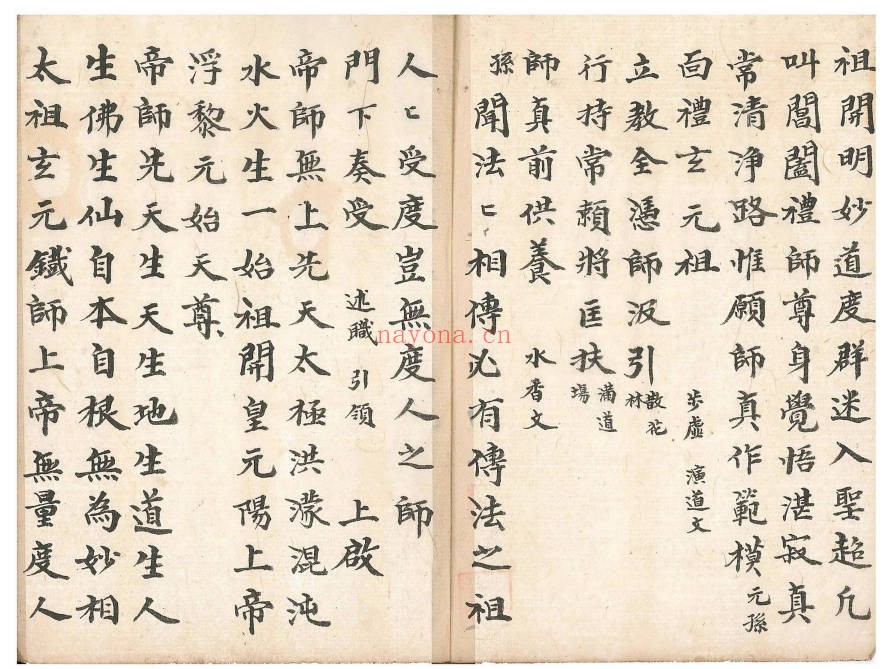 祖開明妙道度群迷入聖超凡
叫閶闔禮師尊身覺悟湛寂真
常清淨路惟願師真作範模 元孫
靣禮玄元祖 步虛 演道文
立教全憑師汲引 散花林
行持常賴將匡扶 滿道場
師真前供養 水香文
孫 聞法〻相傳必有傳法之祖
人〻受度豈無度人之師
門下奏受 述職 引領 上啟
帝師無上先天太極洪濛混沌
水火生一始祖開皇元陽上帝
浮黎元始天尊
帝師先天生天生地生道生人
生佛生仙自本自根無為妙相
太祖玄元鐵師上帝無量度人
nayona.cn